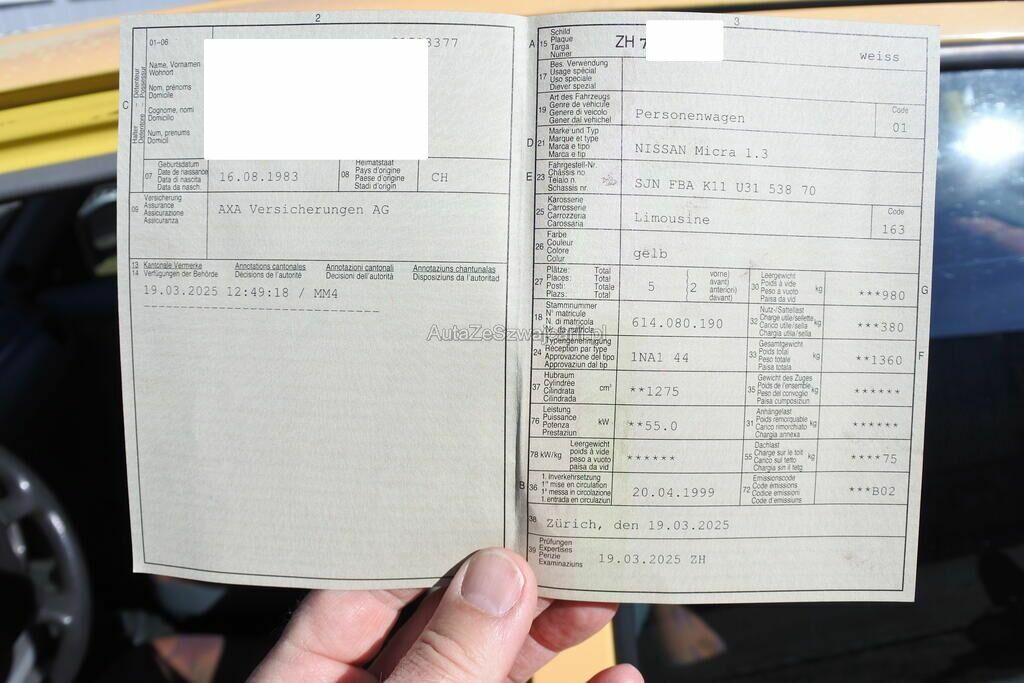 2
01-06
Name, Vornamen
Wohnort
Nom, prénoms
Domicile
Cognome, nomi
Domicilio
Num, prenums
Domicil
C
07 Geburtsdatum
Date de naissance
Data di nascita
Data da nasch.
16.08.1983
08 Heimatstaat
Pays d'origine
Paese d'origine
Stadi d'origin
CH
09 Versicherung
Assurance
Assicurazione
Assicuranza
AXA Versicherungen AG
13 Kantonale Vermerke Annotations cantonales Annotazioni cantonali Annotaziuns chantunalas
14 Verfügungen der Behörde Décisions de l'autorité Decisioni dell'autorità Disposiziuns da l'autoritad
19.03.2025 12:49:18 / MM4
3
A 15 Schild
Plaque
Targa
Numer
ZH 7
weiss
17 Bes. Verwendung
Usage spécial
Uso speciale
Diever spezial
19 Art des Fahrzeugs
Genre de véhicule
Genere di veicolo
Gener dal vehichel
Personenwagen
Code
01
D 21 Marke und Typ
Marque et type
Marca e tipo
Marca e tip
NISSAN Micra 1.3
E 23 Fahrgestell-Nr.
Châssis no
Telaio n.
Schassis nr.
SJN FBA K11 U31 538 70
25 Karosserie
Carrosserie
Carrozzeria
Carossaria
Limousine
Code
163
26 Farbe
Couleur
Colore
Colur
gelb
27 Plätze: Total
Places: Total
Posti: Totale
Plazs: Total
5 { 2 vorne)
avant)
anteriori)
davant)
30 Leergewicht
Poids à vide
Peso a vuoto
Paisa da vid
kg
***980
G
18 Stammnummer
N° matricule
N. di matricola
Nr. da matricla
614.080.190
32 Nutz-/Sattellast
Charge utile/sellette
Carico utile/sella
Chargia utila/sella
kg
***380
24 Typengenehmigung
Réception par type
Approvazione del tipo
Approvaziun dal tip
1NA1 44
33 Gesamtgewicht
Poids total
Peso totale
Paisa totala
kg
**1360
F
37 Hubraum
Cylindrée
Cilindrata
Cilindrada
cm³
**1275
35 Gewicht des Zuges
Poids de l'ensemble
Peso del convoglio
Paisa cumposiziun
kg
******
76 Leistung
Puissance
Potenza
Prestaziun
kW
**55.0
31 Anhängelast
Poids remorquable
Carico rimorchiato
Chargia annexa
kg
******
78 kW/kg Leergewicht
poids à vide
peso a vuoto
paisa da vid
******
55 Dachlast
Charge sur le toit
Carico sul tetto
Chargia sin il tetg
kg
****75
B 36 1. Inverkehrsetzung
1re mise en circulation
1a messa in circolazione
1. entrada en circulaziun
20.04.1999
72 Emissionscode
Code émissions
Codice emissioni
Code d'emissiuns
***B02
38 Zürich, den 19.03.2025
39 Prüfungen
Expertises
Perizie
Examinaziuns
19.03.2025 ZH